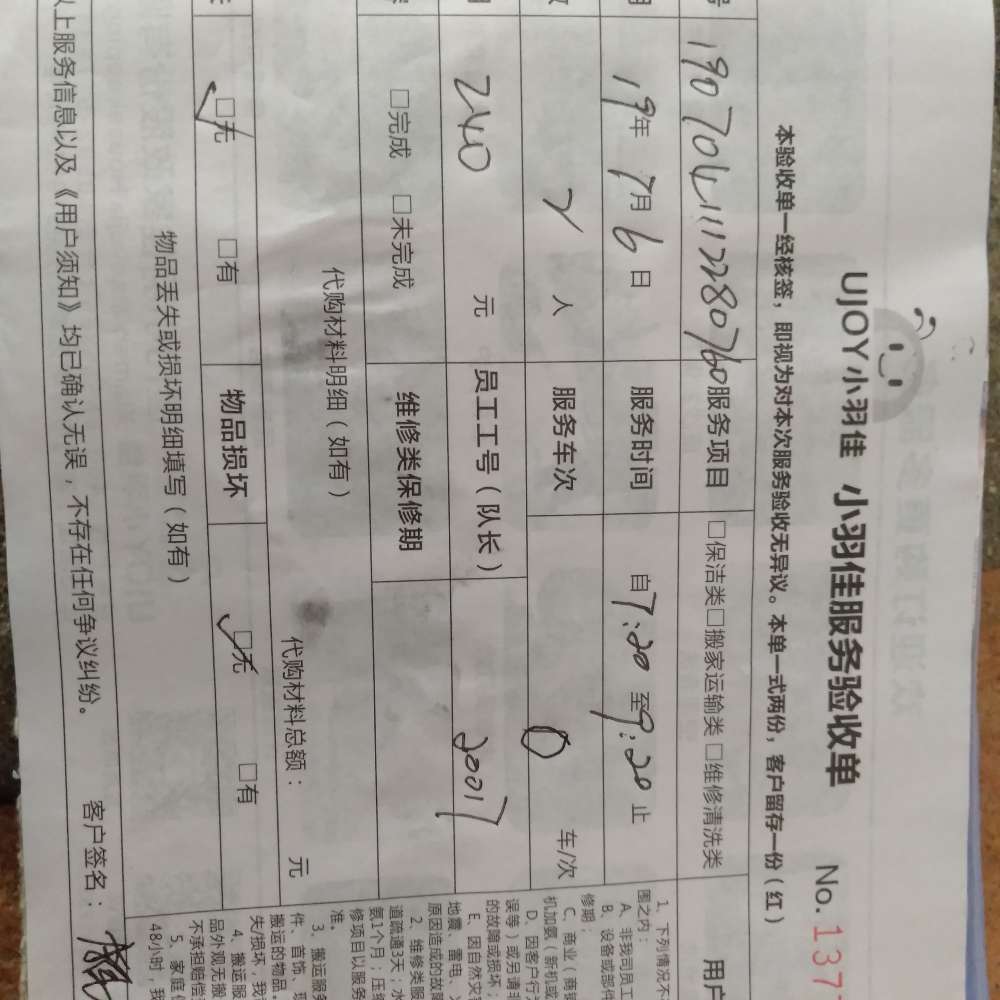 UJOY小羽佳 小羽佳服务验收单 No. 137
本验收单一经核签，即视为对本次服务验收无异议。本单一式两份，客户留存一份（红）
号 1907041112280760 服务项目 □保洁类□搬家运输类 □维修清洗类
19年7月6日 服务时间 自7:20至9:20止
2人 服务车次 0 车/次
240 元 员工工号（队长） 20017
□完成 □未完成 维修类保修期
代购材料明细（如有） 代购材料总额： 元
□无 □有 物品损坏 □无 □有
物品丢失或损坏明细填写（如有）
以上服务信息以及《用户须知》均已确认无误，不存在任何争议纠纷。 客户签名：
用户
1、下列情况不
围之内：
A、非我司员工
B、设备或部件
修期；
C、商业（商铺
机加氨（新机或
D、因客户行为
误等）或另请非
的故障或损坏；
E、因自然灾害
地震、雷电、
原因造成的故障
2、维修类服
道疏通3天；水
氨1个月；压缩
修项目以服务
准。
3、搬运服务
件、首饰、现
搬运的物品。
4、搬运服
失/损坏，我
品外观无搬
5、家庭
不承担赔偿
48小时，我